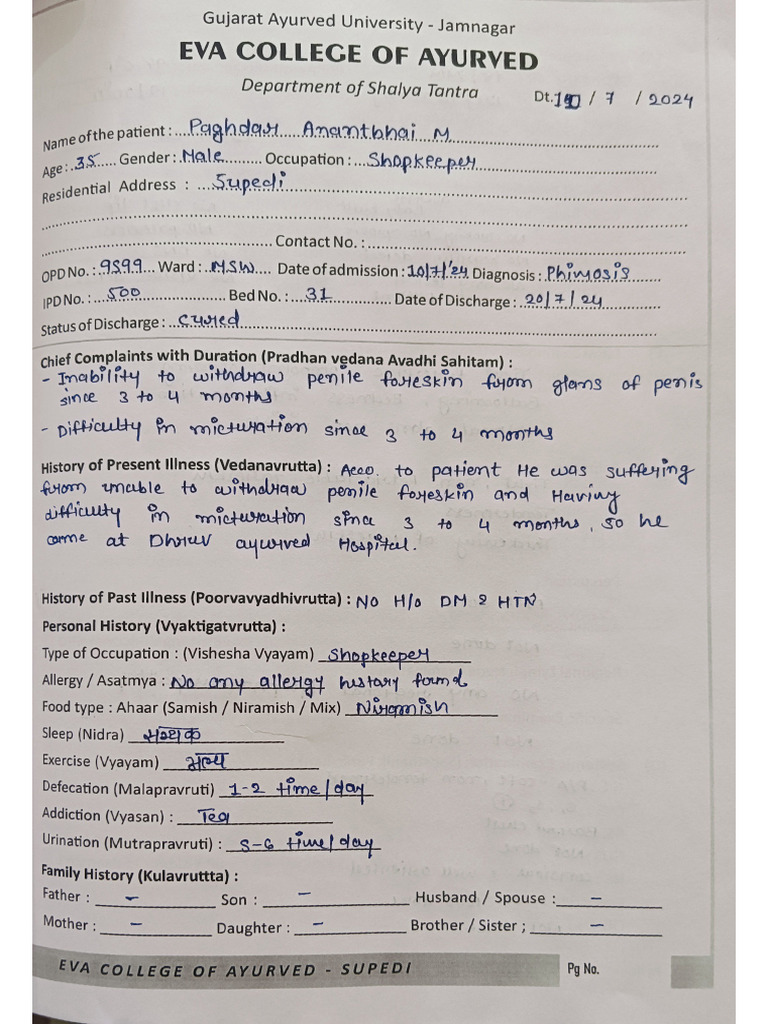 Gujarat Ayurved University - Jamnagar
EVA COLLEGE OF AYURVED
Department of Shalya Tantra
Dt. 10 / 7 / 2024
Name of the patient : Paghdar Ananthhai M
Age : 35 Gender : Male Occupation : Shopkeeper
Residential Address : Supedi
Contact No. :
OPD No. : 9599 Ward : MSW Date of admission : 10/7/'24 Diagnosis : Phimosis
IPD No. : 500 Bed No. : 31 Date of Discharge : 20/7/24
Status of Discharge : cured
Chief Complaints with Duration (Pradhan vedana Avadhi Sahitam) :
- Inability to withdraw penile foreskin from glans of penis
since 3 to 4 months
- Difficulty in micturation since 3 to 4 months
History of Present Illness (Vedanavrutta) : Acco. to patient He was suffering
from unable to withdraw penile foreskin and Having
difficulty in micturation since 3 to 4 months, so he
came at Dhruv ayurved Hospital.
History of Past Illness (Poorvavyadhivrutta) : NO H/o DM & HTN
Personal History (Vyaktigatvrutta) :
Type of Occupation : (Vishesha Vyayam) Shopkeeper
Allergy / Asatmya : No any allergy history found
Food type : Ahaar (Samish / Niramish / Mix) Niramish
Sleep (Nidra)
Exercise (Vyayam)
Defecation (Malapravruti) 1-2 time/day
Addiction (Vyasan) : Tea
Urination (Mutrapravruti) : 5-6 time/day
Family History (Kulavruttta) :
Father : - Son : - Husband / Spouse : -
Mother : - Daughter : - Brother / Sister ; -
EVA COLLEGE OF AYURVED - SUPEDI Pg No.